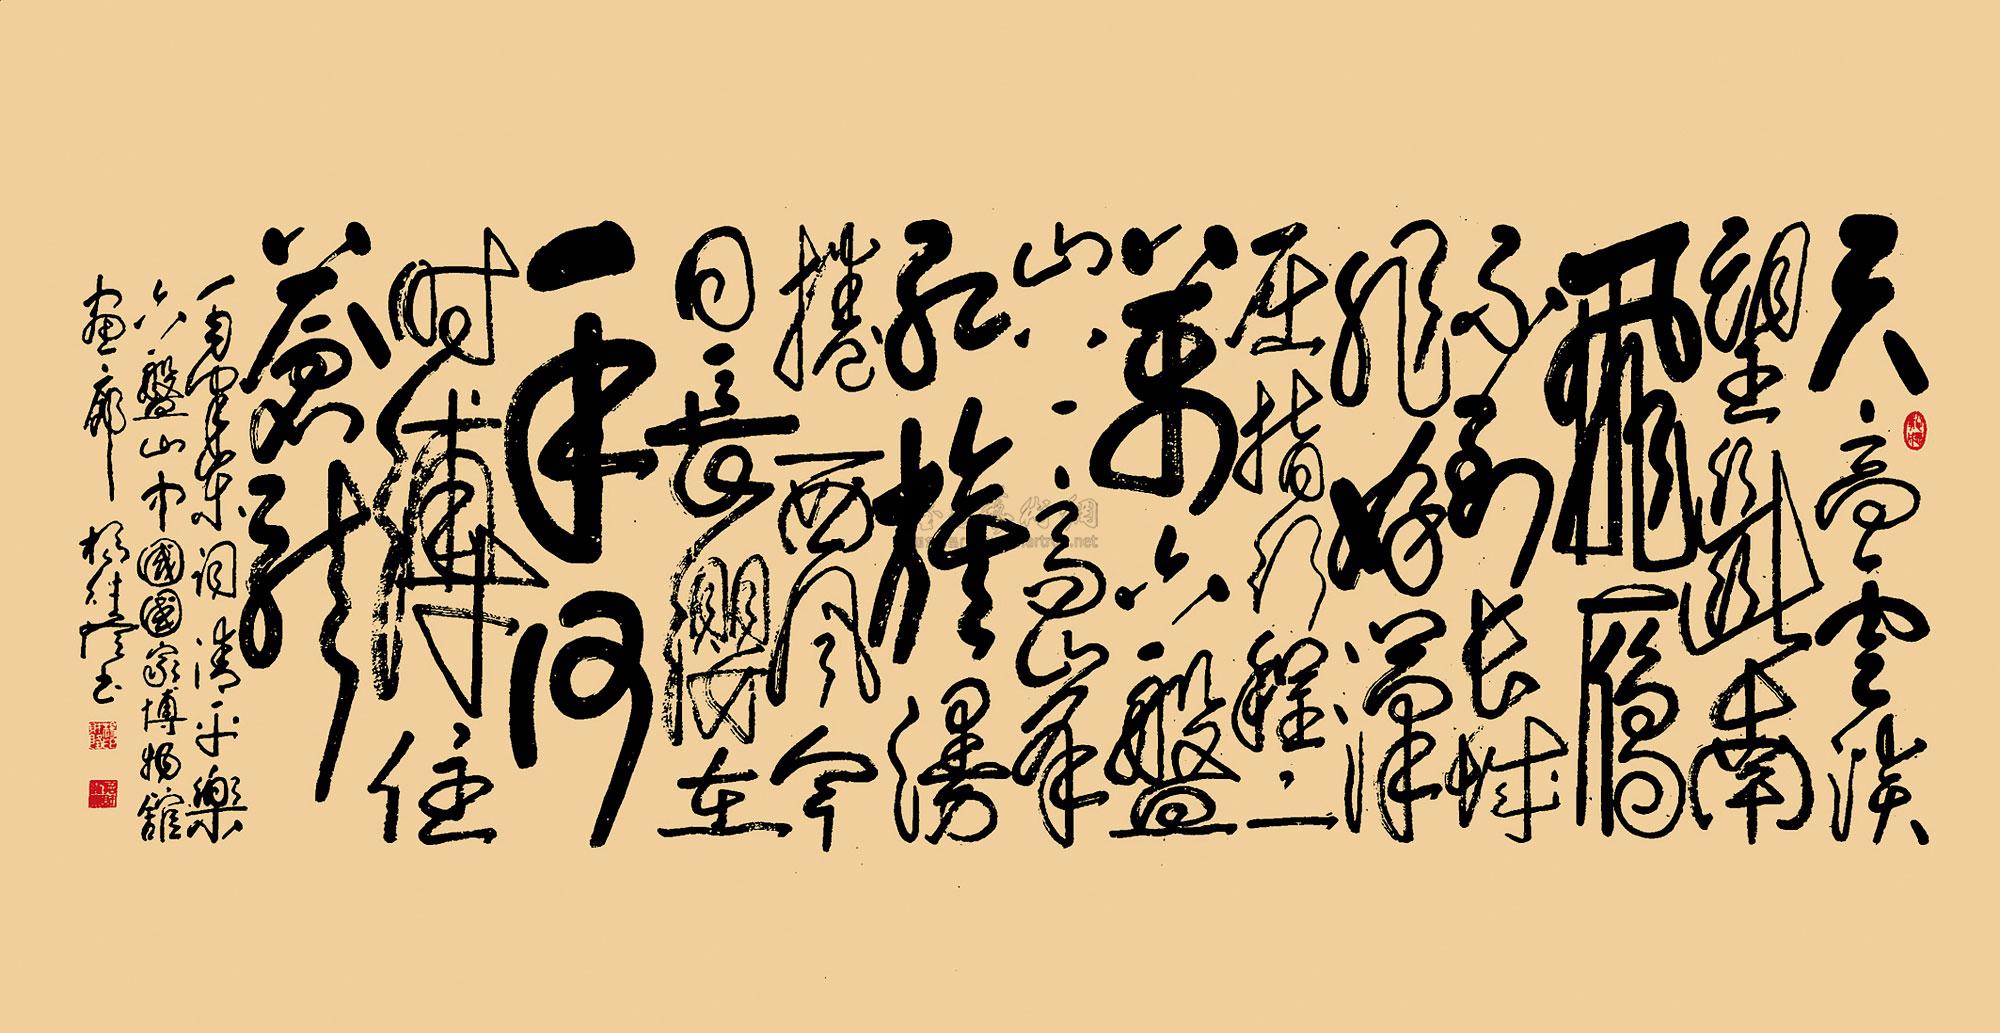 天高雲淡
望斷南
飛鴈
不到长城
非好漢
屈指行程二
萬六盤
山上高峯
紅旗漫
捲西風今
日長纓在
手何
時縛住
蒼龍
毛澤東詞清平樂
六盤山中國國家博物館
畫廊 書